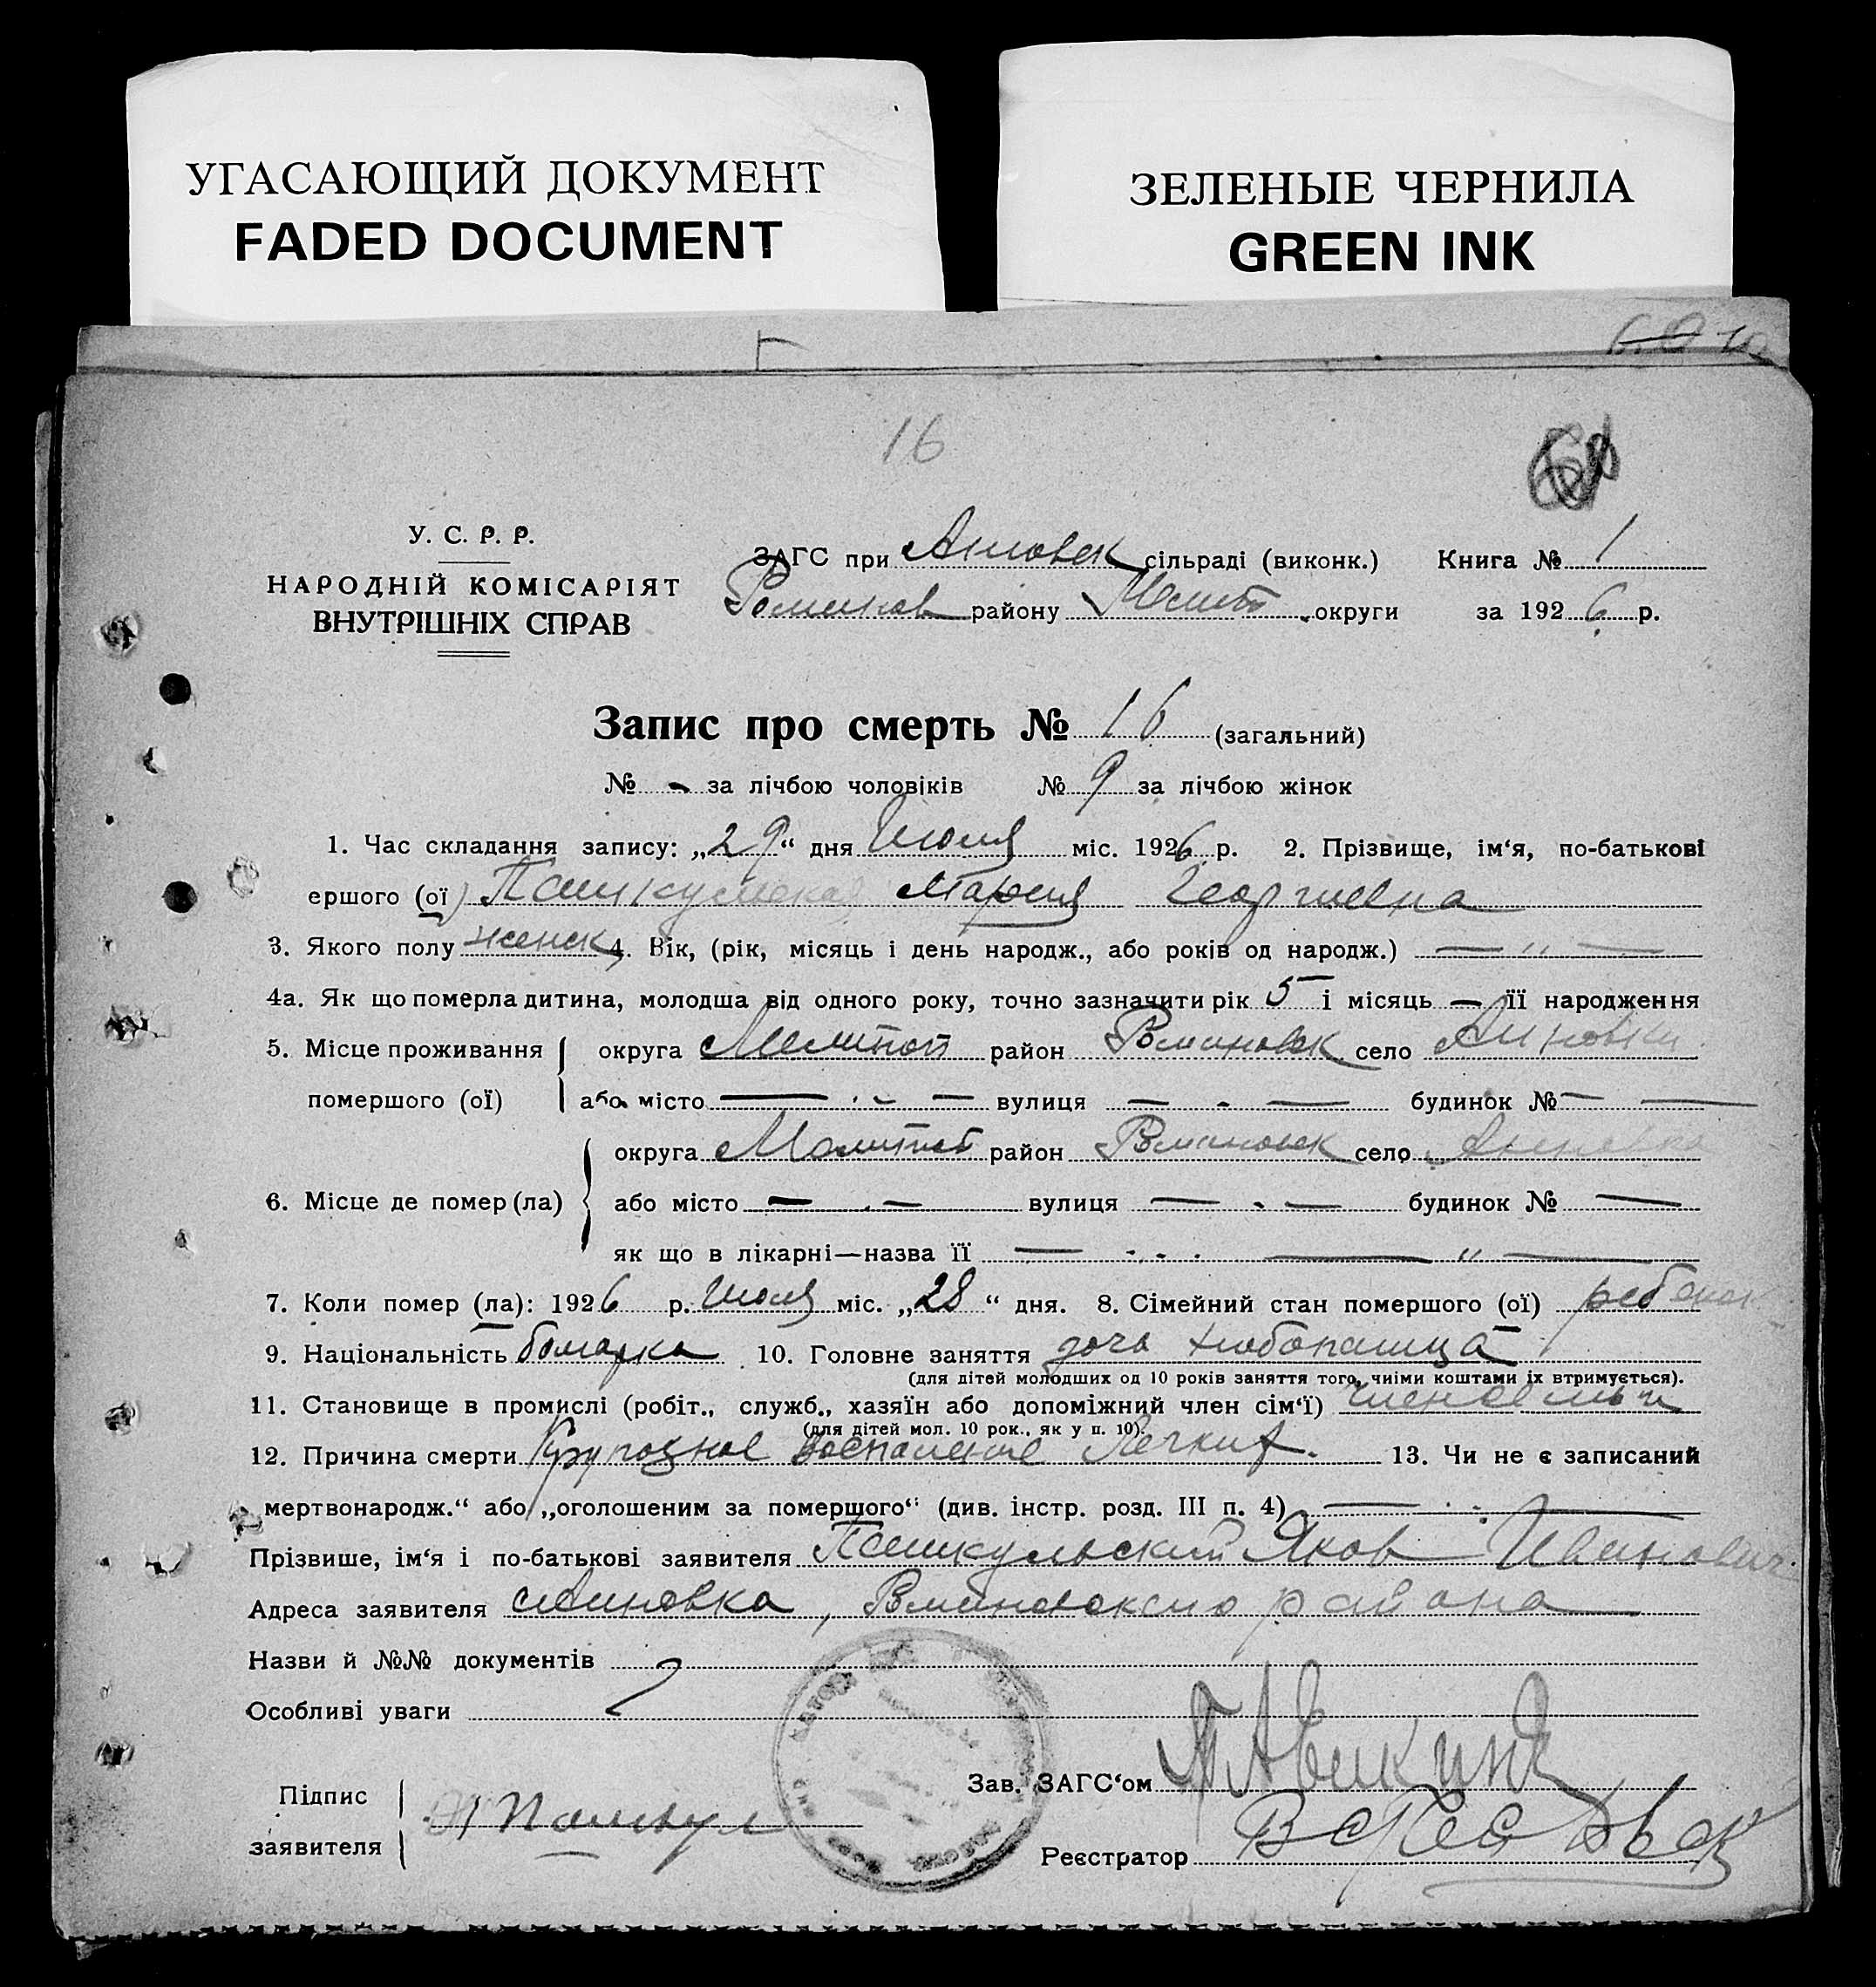 УГАСАЮЩИЙ ДОКУМЕНТ
FADED DOCUMENT
ЗЕЛЕНЫЕ ЧЕРНИЛА
GREEN INK
16
У. С. Р. Р.
НАРОДНІЙ КОМІСАРІЯТ
ВНУТРІШНІХ СПРАВ
ЗАГС при Анновск сільраді (виконк.) Книга № 1
району Мелит округи за 1926 р.
Запис про смерть № 16 (загальний)
№ - за лічбою чоловіків № 9 за лічбою жінок
1. Час складання запису: „29“ дня Июля міс. 1926 р. 2. Прізвище, ім‘я, по-батькові
ершого (ої) Мария Георгиевна
3. Якого полу женск 4. Вік, (рік, місяць і день народж., або років од народж.) — " —
4а. Як що померла дитина, молодша від одного року, точно зазначити рік 5 і місяць — її народження
5. Місце проживання помершого (ої) округа Мелитоп район Романовск село Анновки
або місто — вулиця — - — будинок № —
6. Місце де помер (ла) округа Мелитоп район Романовск село Анновка
або місто — . — вулиця — . — будинок № —
як що в лікарні—назва її — " —
7. Коли помер (ла): 1926 р. июля міс. „28“ дня. 8. Сімейний стан помершого (ої) ребенок
9. Національність болгарка 10. Головне заняття доч хлебопашца
(для дітей молодших од 10 років заняття того, чиїми коштами їх втримується).
11. Становище в промислі (робіт., служб., хазяїн або допоміжний член сім‘ї) член семьи
(для дітей мол. 10 рок., як у п. 10).
12. Причина смерти Крупозное воспаление Легких. 13. Чи не є записаний
мертвонародж.“ або „оголошеним за помершого“ (див. інстр. розд. III п. 4) —
Прізвише, ім‘я і по-батькові заявителя Яков Иванович
Адреса заявителя с Анновка, Романовского района
Назви й №№ документів
Особливі уваги
Підпис заявителя
Зав. ЗАГС‘ом
Реєстратор